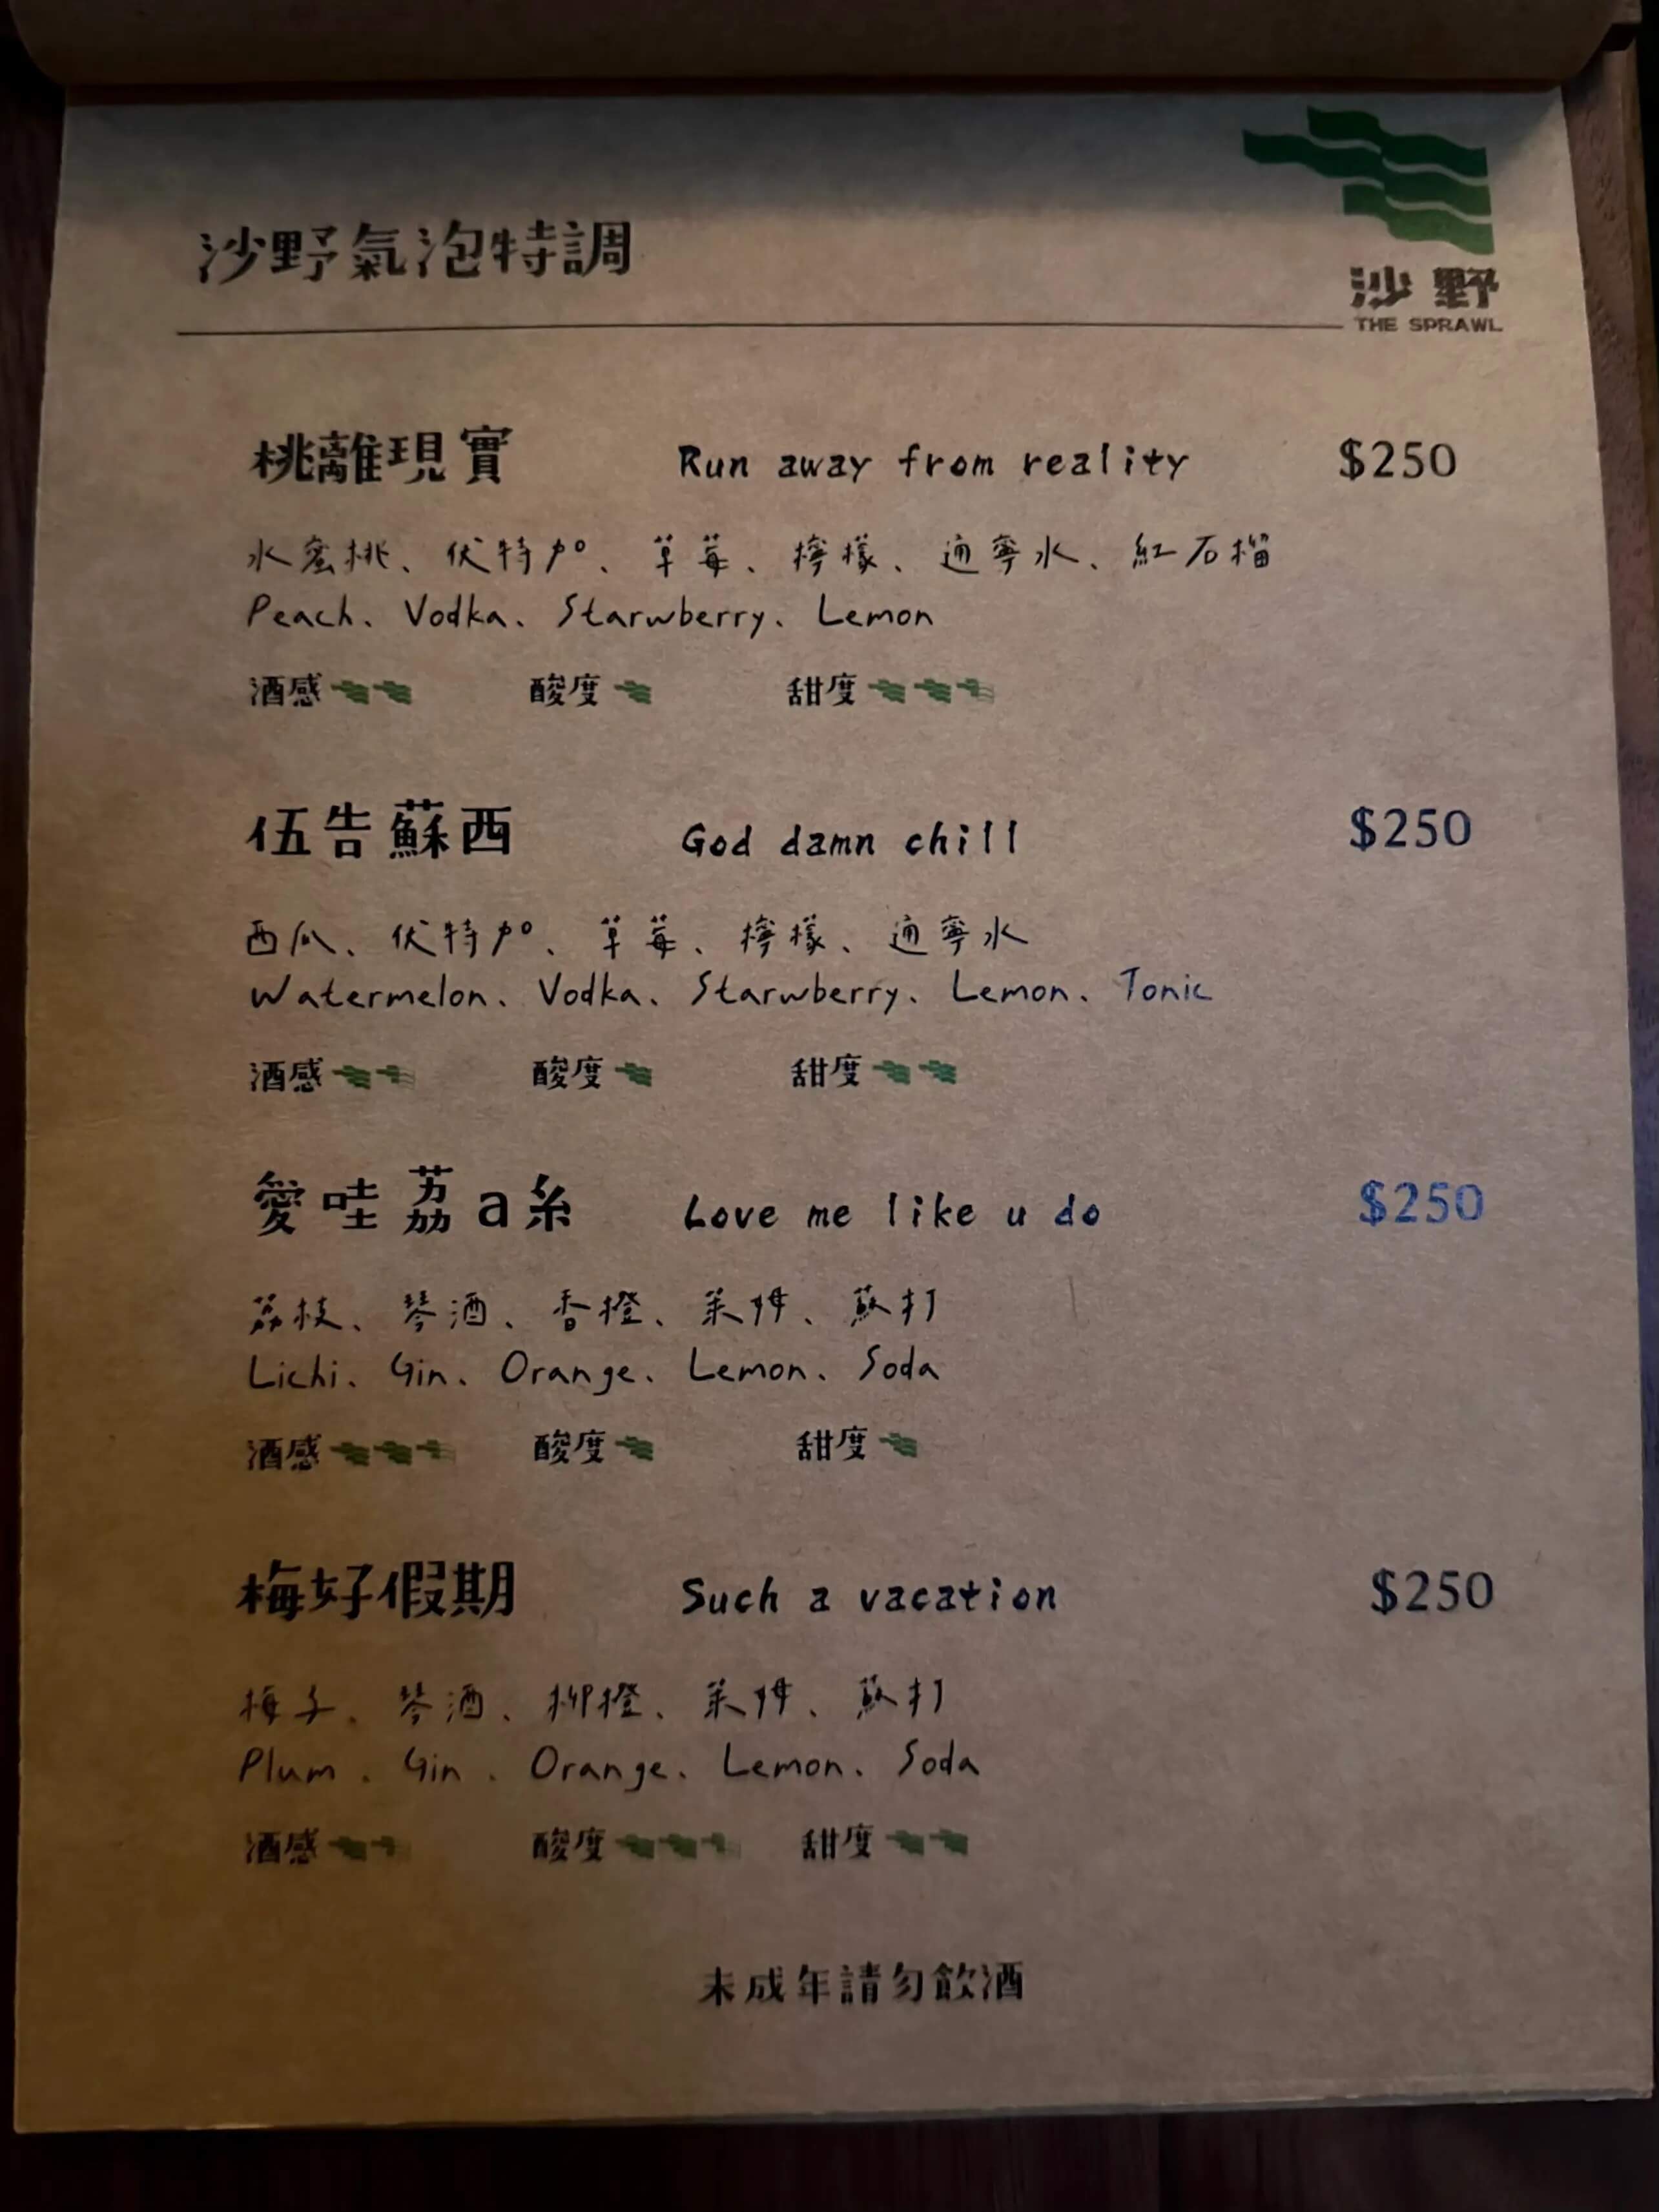 沙野氣泡特調
沙野
THE SPRAWL
桃離現實 Run away from reality $250
水蜜桃、伏特加、草莓、檸檬、通寧水、紅石榴
Peach、Vodka、Starwberry、Lemon
酒感 酸度 甜度
伍告蘇西 God damn chill $250
西瓜、伏特加、草莓、檸檬、通寧水
Watermelon、Vodka、Starwberry、Lemon、Tonic
酒感 酸度 甜度
愛哇荔a糸 Love me like u do $250
荔枝、琴酒、香橙、萊姆、蘇打
Lichi、Gin、Orange、Lemon、Soda
酒感 酸度 甜度
梅好假期 Such a vacation $250
梅子、琴酒、柳橙、萊姆、蘇打
Plum、Gin、Orange、Lemon、Soda
酒感 酸度 甜度
未成年請勿飲酒